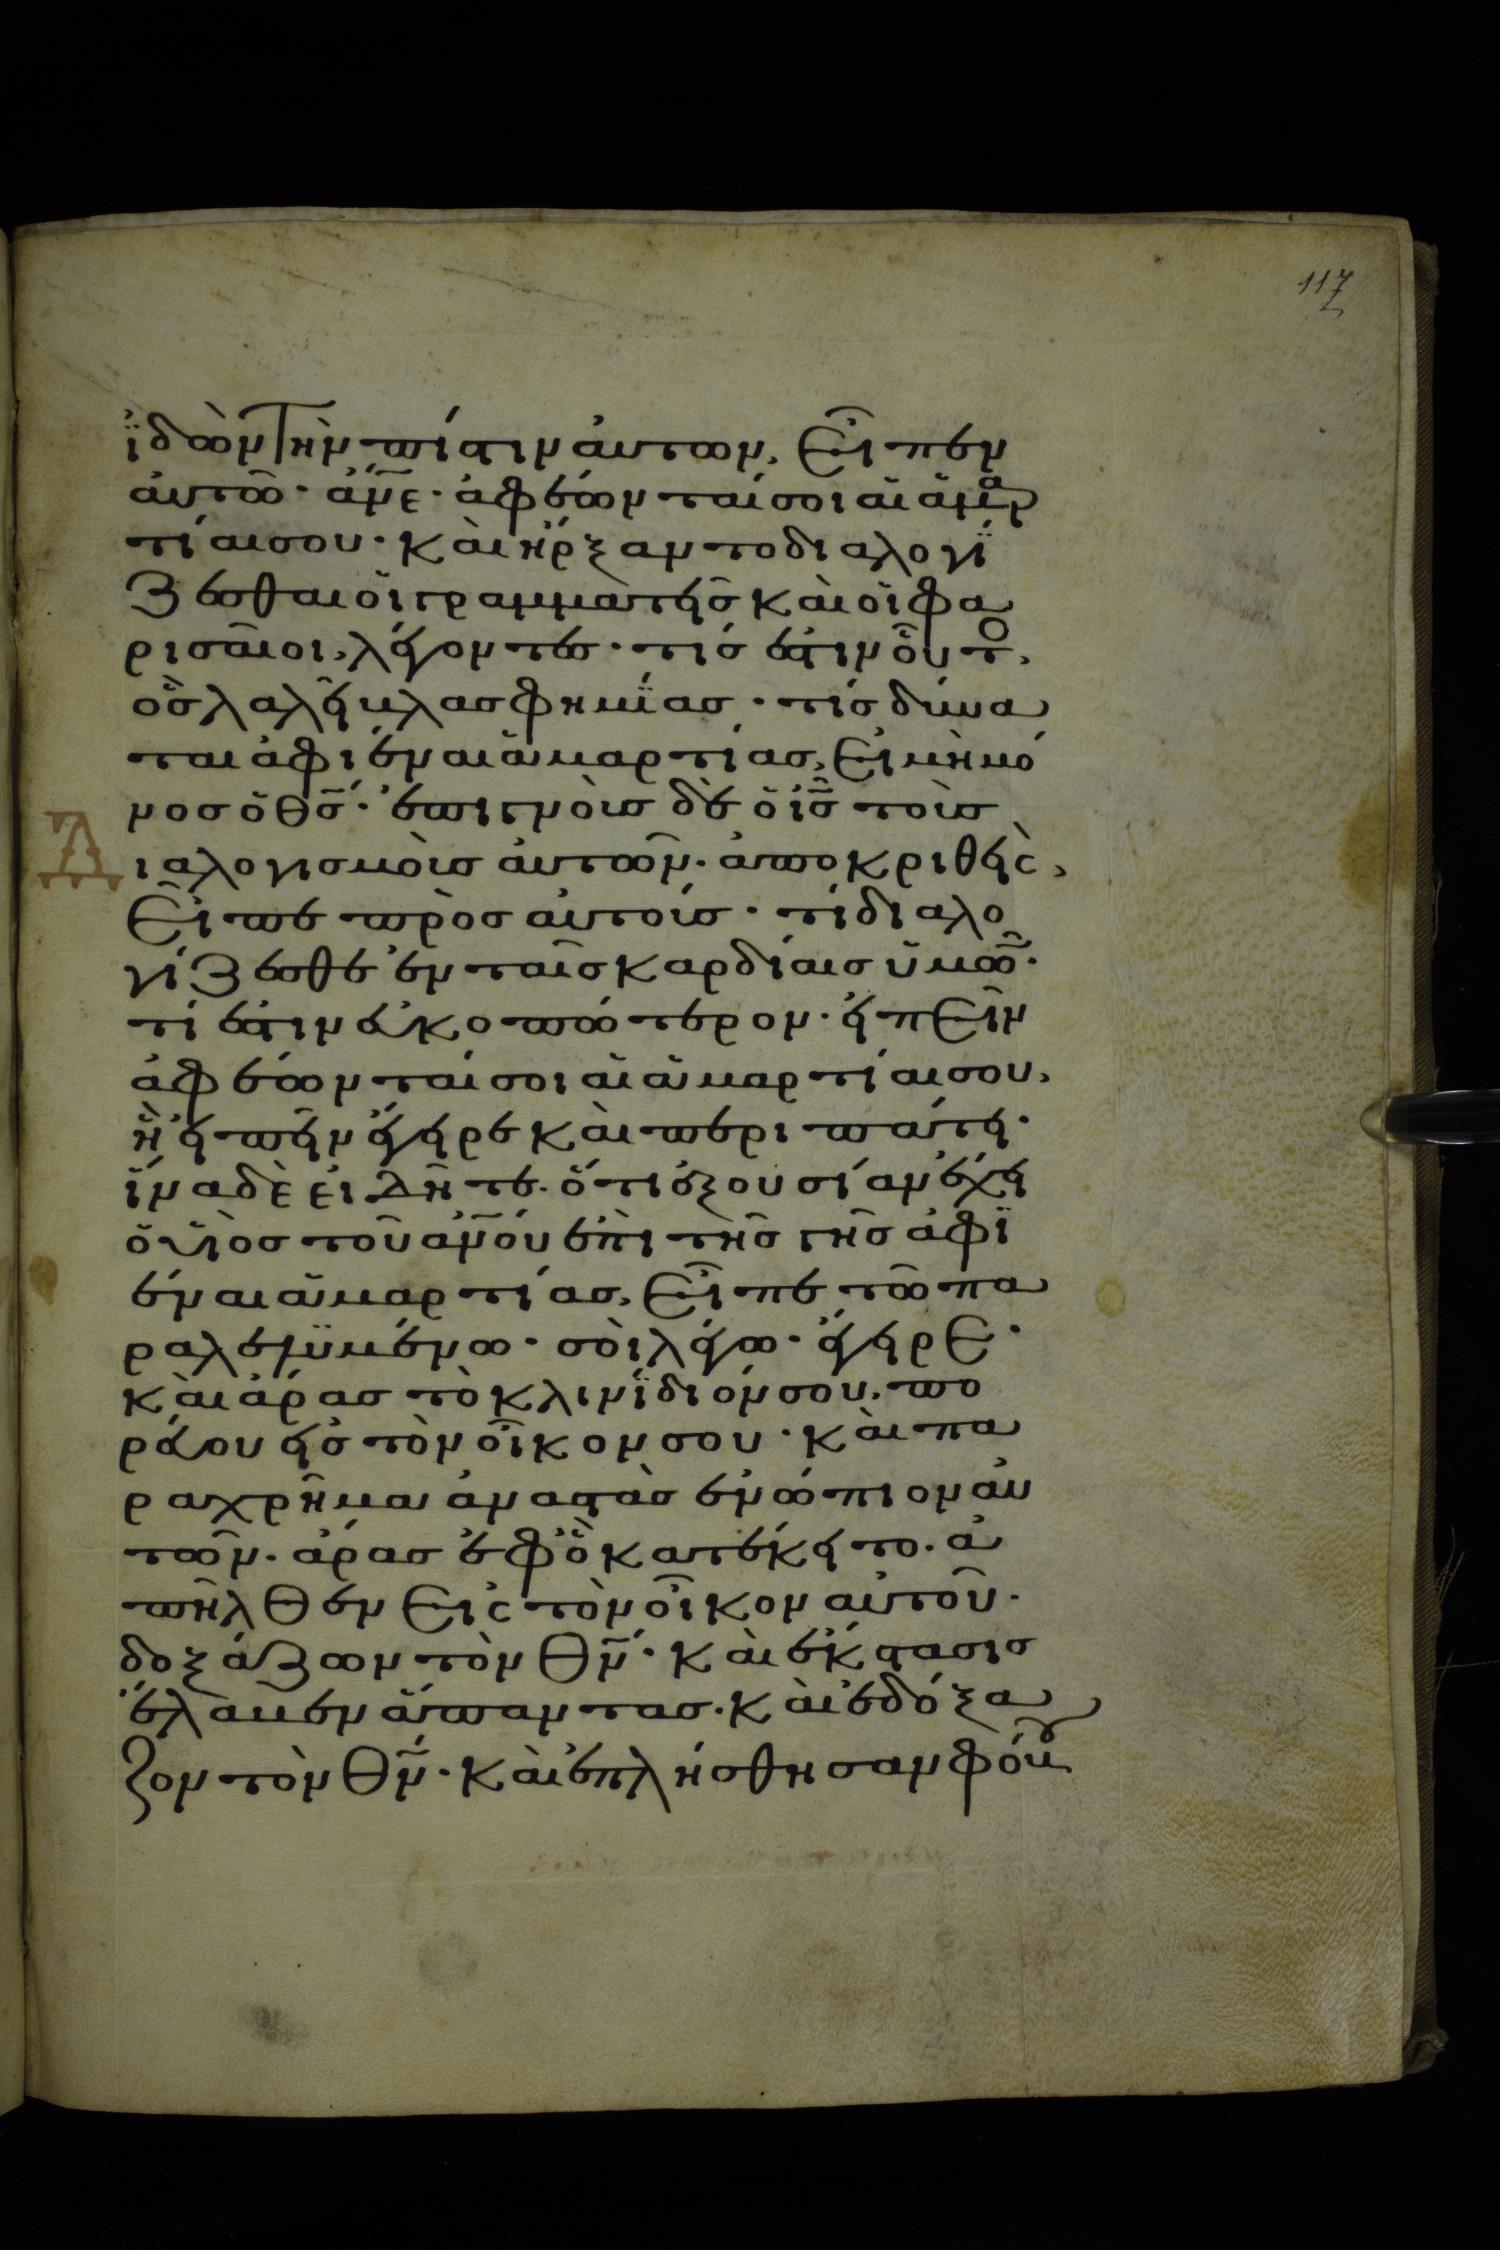 117
ἰ̈δὼν τὴν πίστιν ἀυτων, Εἶπεν
ἀυτῶ· ἄν̅ε· ἀφέωνταί σοι αἱ ἁμαρ
τίαι σου· κὰι ἤρξαντο διαλογί̈
ζεσθαι οἱ γραμματεῖσ κὰι οἱ φα
ρισᾶιοι, λέγοντεσ· τίσ ἐστιν οὗτο,
ὃσ λαλεῖ βλασφημί̈ασ· τίσ δύνα
ται ἀφιέναι ἁμαρτίασ, Εἰ μὴ μό
νοσ ὁ θ̅σ̅· ἐπιγνὸυσ δὲ ὁ ι̅σ̅ τοὺσ
Διαλογισμὸυσ ἀυτῶν· ἀποκριθεὶς,
Εἶπε πρὸσ αὐτούσ· τί διαλο
γίζεσθε ἐν ταῖσ καρδίαισ ὑμῶν·
τί ἐστιν ἐυκοπώτερον· ἐιπΕῖν
ἀφέωνταί σοι αἱ ἁμαρτίαι σου,
ἢ ἐιπεῖν ἔγειρε κὰι περιπάτει·
ἵνα δὲ εἰΔῆτε· ὅτι ἐξουσίαν ἔχει
ὁ υἱὸσ τοῦ ἀν̅ου ἐπὶ τῆσ γῆσ ἀφϊ
έναι ἁμαρτίασ, Εἶπε τῶ πα
ραλελϋμένω· σὸι λέγω· ἔγειρΕ·
κὰι ἄρασ τὸ κλινί̈διόν σου, πο
ρεύου εἰσ τὸν οἶκον σου· κὰι πα
ραχρῆμα ἀναστὰσ ἐνώπιον ἀυ
τῶν· ἄρασ ἐφ' ὃ κατέκειτο· ἀ
πῆλθεν Εἰς τὸν οἶκον αὐτοῦ·
δοξάζων τὸν θ̅ν̅· κὰι ἔκστασισ
ἔλαβεν ἅπαντασ· κὰι ἐδόξα
ζον τὸν θ̅ν̅· κὰι ἐπλήσθησαν φόβου